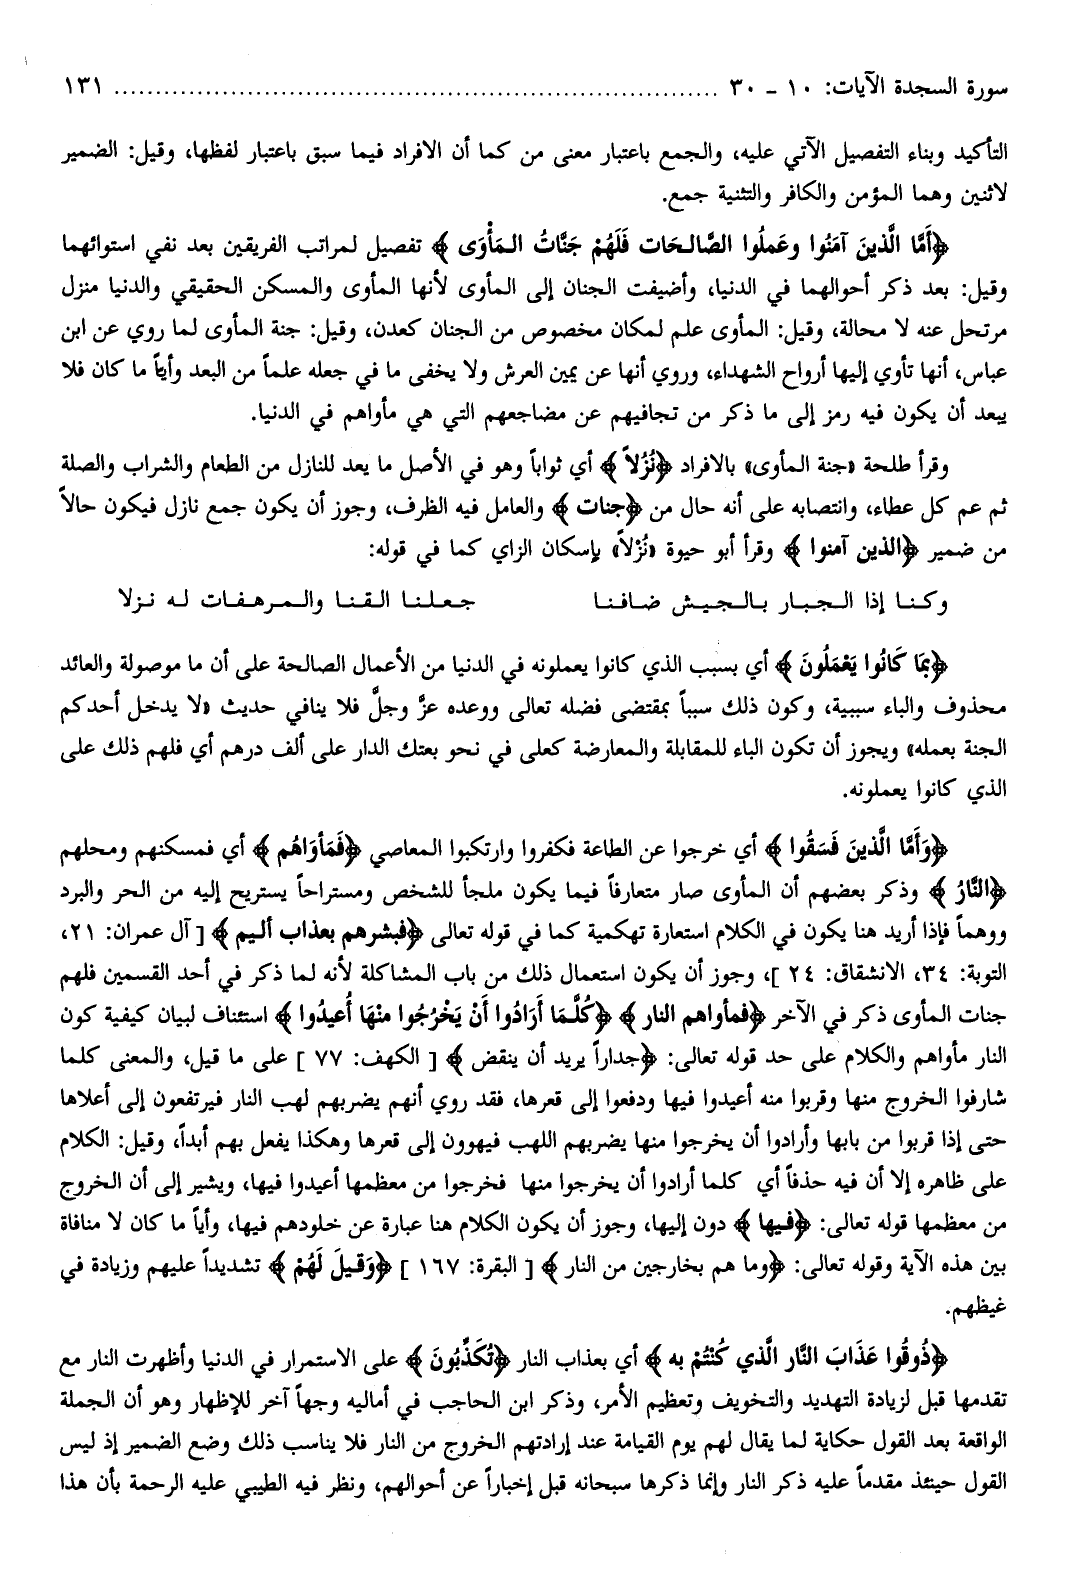 سورة السجدة الآيات: ١٠ - ٣٠ ........................................................................ ١٣١
التأكيد وبناء التفصيل الآتي عليه، والجمع باعتبار معنى من كما أن الافراد فيما سبق باعتبار لفظها، وقيل: الضمير
لاثنين وهما المؤمن والكافر والتثنية جمع.
﴿أَمَّا الَّذينَ آمَنُوا وعَملُوا الصَّالحَات فَلَهُمْ جَنَّاتُ المَأْوَى﴾ تفصيل لمراتب الفريقين بعد نفي استوائهما
وقيل: بعد ذكر أحوالهما في الدنيا، وأضيفت الجنان إلى المأوى لأنها المأوى والمسكن الحقيقي والدنيا منزل
مرتحل عنه لا محالة، وقيل: المأوى علم لمكان مخصوص من الجنان كعدن، وقيل: جنة المأوى لما روي عن ابن
عباس، أنها تأوي إليها أرواح الشهداء، وروي أنها عن يمين العرش ولا يخفى ما في جعله علماً من البعد وأياً ما كان فلا
يبعد أن يكون فيه رمز إلى ما ذكر من تجافيهم عن مضاجعهم التي هي مأواهم في الدنيا.
وقرأ طلحة «جنة المأوى» بالافراد ﴿نُزُلاً﴾ أي ثواباً وهو في الأصل ما يعد للنازل من الطعام والشراب والصلة
ثم عم كل عطاء، وانتصابه على أنه حال من ﴿جنات﴾ والعامل فيه الظرف، وجوز أن يكون جمع نازل فيكون حالاً
من ضمير ﴿الذين آمنوا﴾ وقرأ أبو حيوة «نُزْلاً» بإسكان الزاي كما في قوله:
وكنا إذا الجبار بالجيش ضافنا جعلنا القنا والمرهفات له نزلا
﴿بمَا كَانُوا يَعْمَلُونَ﴾ أي بسبب الذي كانوا يعملونه في الدنيا من الأعمال الصالحة على أن ما موصولة والعائد
محذوف والباء سببية، وكون ذلك سبباً بمقتضى فضله تعالى ووعده عزَّ وجلَّ فلا ينافي حديث «لا يدخل أحدكم
الجنة بعمله» ويجوز أن تكون الباء للمقابلة والمعارضة كعلى في نحو بعتك الدار على ألف درهم أي فلهم ذلك على
الذي كانوا يعملونه.
﴿وَأَمَّا الَّذينَ فَسَقُوا﴾ أي خرجوا عن الطاعة فكفروا وارتكبوا المعاصي ﴿فَمَأوَاهُم﴾ أي فمسكنهم ومحلهم
﴿النَّارُ﴾ وذكر بعضهم أن المأوى صار متعارفاً فيما يكون ملجأ للشخص ومستراحاً يستريح إليه من الحر والبرد
ووهماً فإذا أريد هنا يكون في الكلام استعارة تهكمية كما في قوله تعالى ﴿فبشرهم بعذاب أليم﴾ [آل عمران: ٢١،
التوبة: ٣٤، الانشقاق: ٢٤]، وجوز أن يكون استعمال ذلك من باب المشاكلة لأنه لما ذكر في أحد القسمين فلهم
جنات المأوى ذكر في الآخر ﴿فمأواهم النار﴾ ﴿كُلَّمَا أَرَادُوا أَنْ يَخْرُجُوا منْهَا أُعيدُوا﴾ استئناف لبيان كيفية كون
النار مأواهم والكلام على حد قوله تعالى: ﴿جداراً يريد أن ينقض﴾ [الكهف: ٧٧] على ما قيل، والمعنى كلما
شارفوا الخروج منها وقربوا منه أعيدوا فيها ودفعوا إلى قعرها، فقد روي أنهم يضربهم لهب النار فيرتفعون إلى أعلاها
حتى إذا قربوا من بابها وأرادوا أن يخرجوا منها يضربهم اللهب فيهوون إلى قعرها وهكذا يفعل بهم أبداً، وقيل: الكلام
على ظاهره إلا أن فيه حذفاً أي كلما أرادوا أن يخرجوا منها فخرجوا من معظمها أعيدوا فيها، ويشير إلى أن الخروج
من معظمها قوله تعالى: ﴿فيها﴾ دون إليها، وجوز أن يكون الكلام هنا عبارة عن خلودهم فيها، وأياً ما كان لا منافاة
بين هذه الآية وقوله تعالى: ﴿وما هم بخارجين من النار﴾ [البقرة: ١٦٧] ﴿وَقيلَ لَهُمْ﴾ تشديداً عليهم وزيادة في
غيظهم.
﴿ذُوقُوا عَذَابَ النَّار الَّذي كُنْتُمْ به﴾ أي بعذاب النار ﴿تُكَذِّبُونَ﴾ على الاستمرار في الدنيا وأظهرت النار مع
تقدمها قبل لزيادة التهديد والتخويف وتعظيم الأمر، وذكر ابن الحاجب في أماليه وجهاً آخر للإظهار وهو أن الجملة
الواقعة بعد القول حكاية لما يقال لهم يوم القيامة عند إرادتهم الخروج من النار فلا يناسب ذلك وضع الضمير إذ ليس
القول حينئذ مقدماً عليه ذكر النار وإنما ذكرها سبحانه قبل إخباراً عن أحوالهم، ونظر فيه الطيبي عليه الرحمة بأن هذا